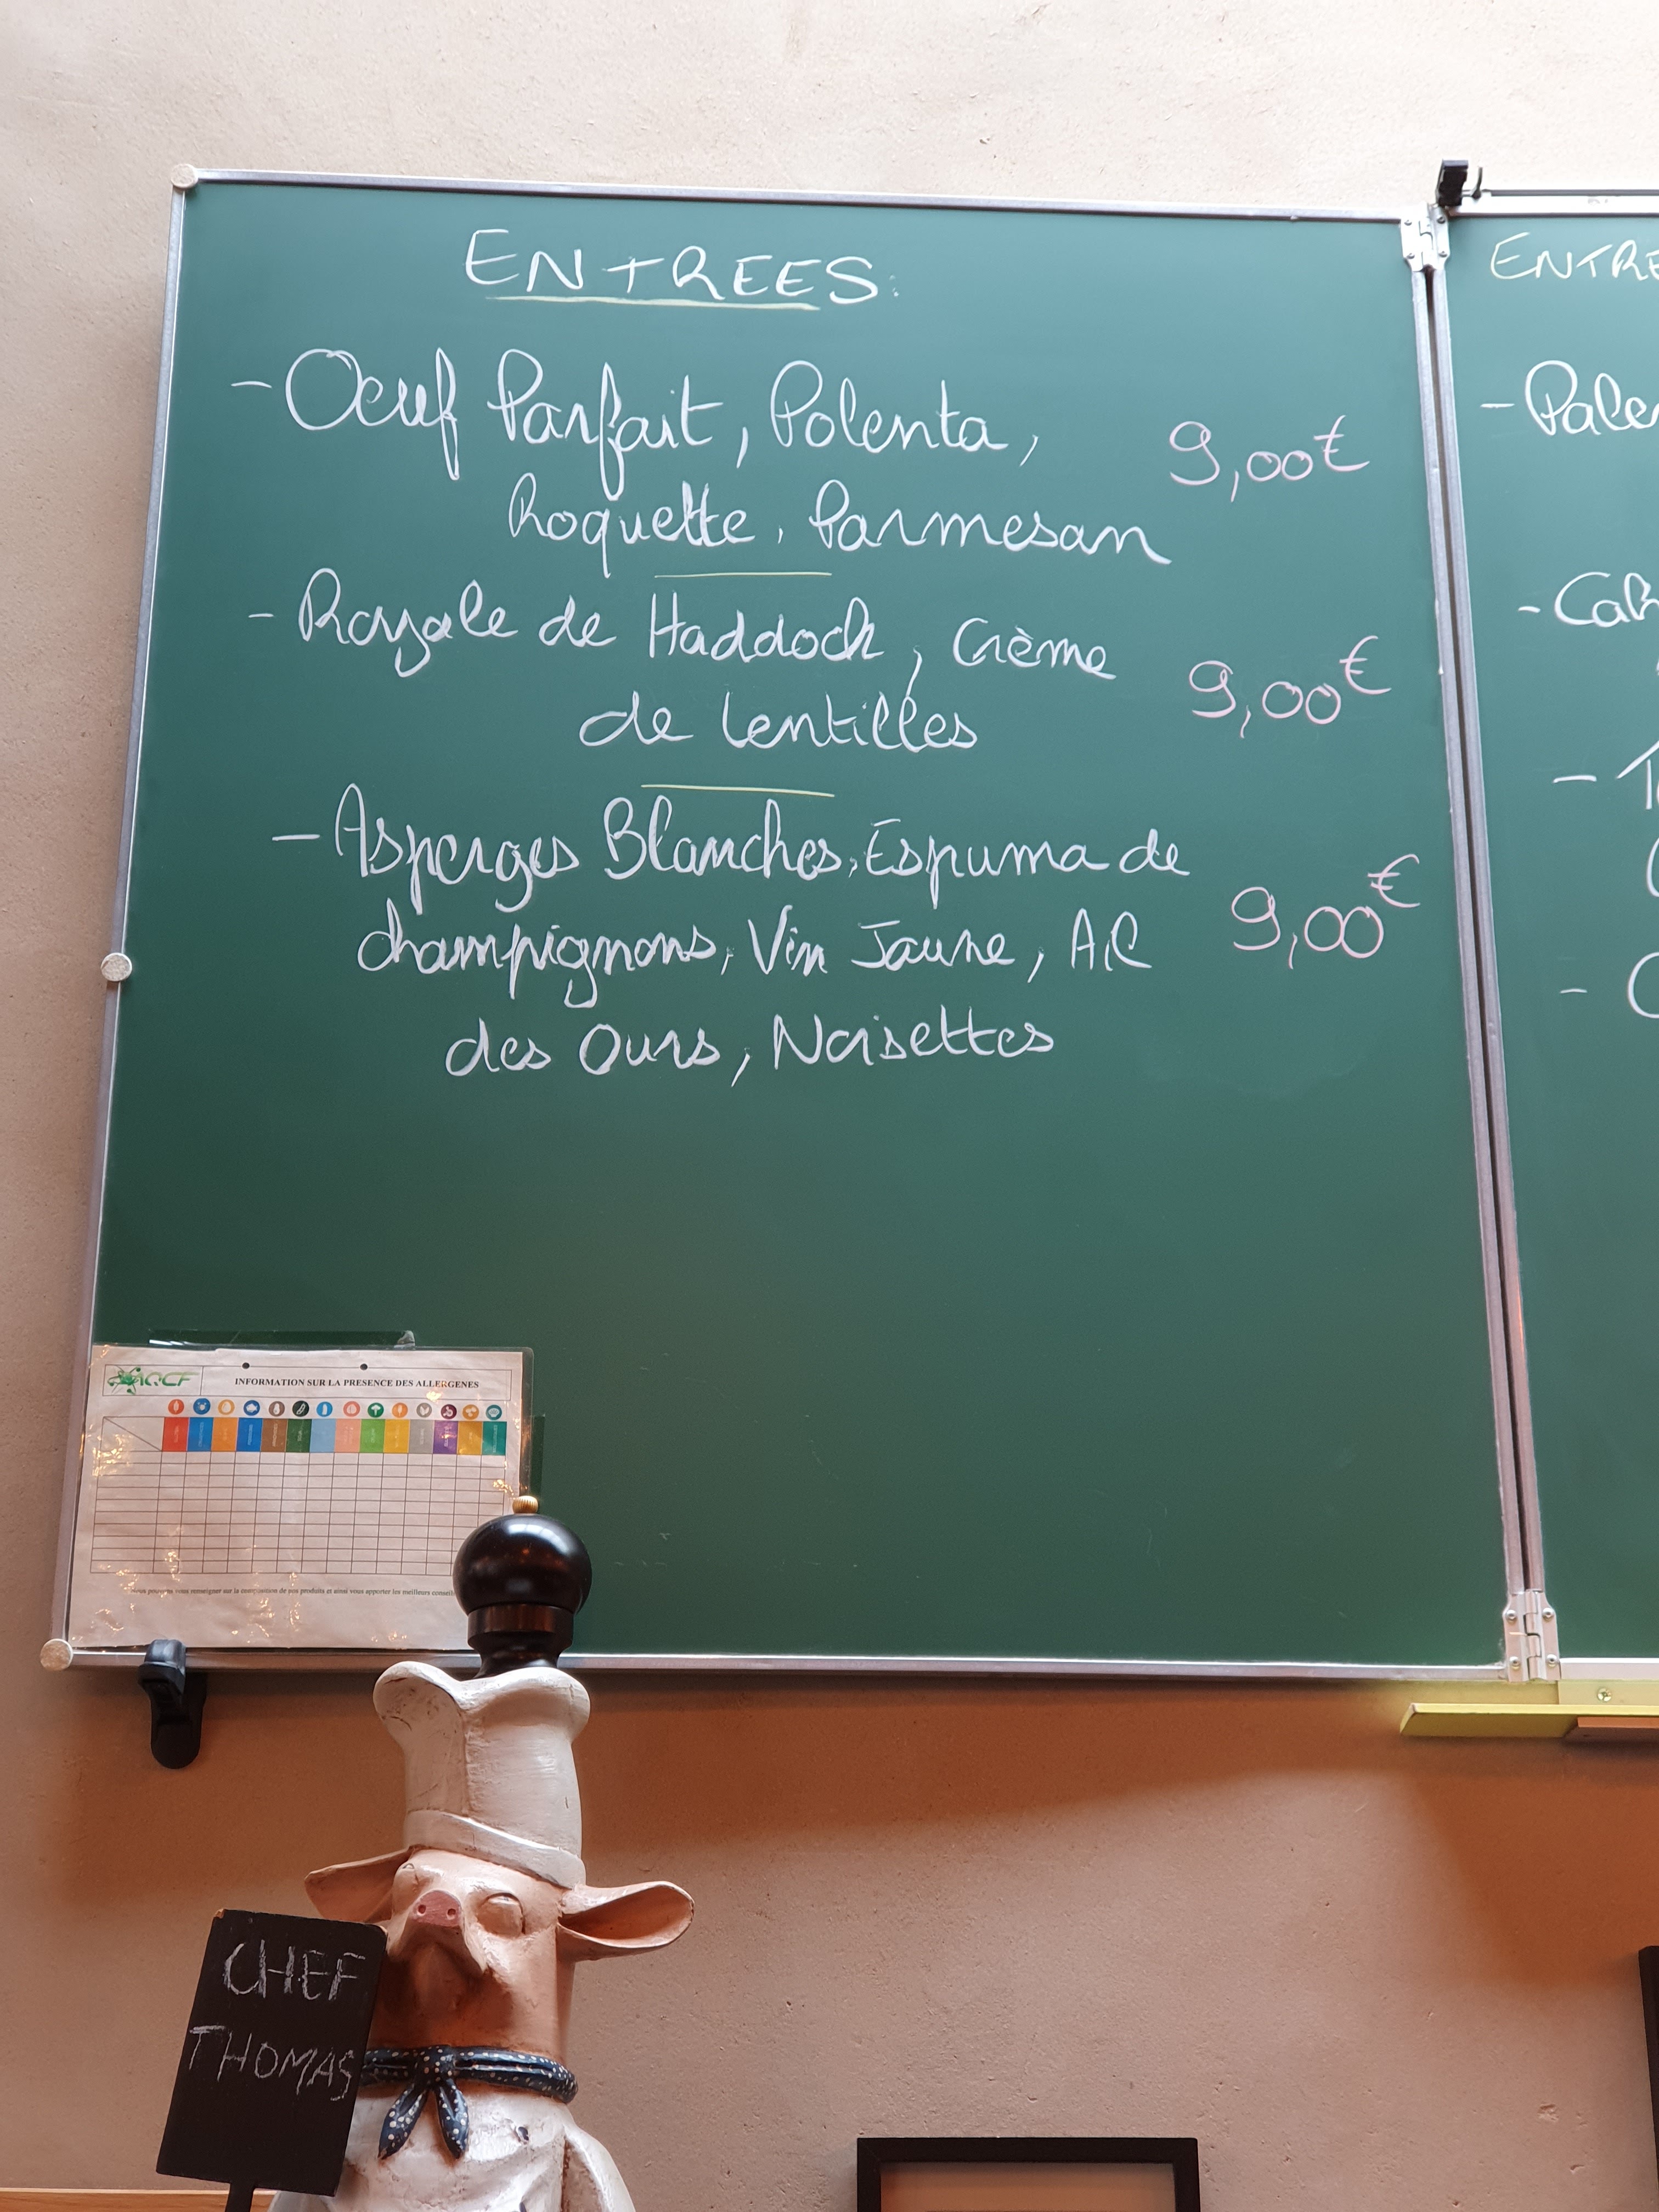 ENTREES:
- Oeuf Parfait, Polenta,
Roquette, Parmesan
9,00€
- Royale de Haddock, Crème
de lentilles
9,00€
- Asperges Blanches, Espuma de
champignons, Vin Jaune, Ail
des Ours, Noisettes
9,00€
ENTRE
- Pale
- Cab
AQCF
INFORMATION SUR LA PRESENCE DES ALLERGENES
vous renseigner sur la composition de nos produits et ainsi vous apporter les meilleurs conseils
CHEF
THOMAS